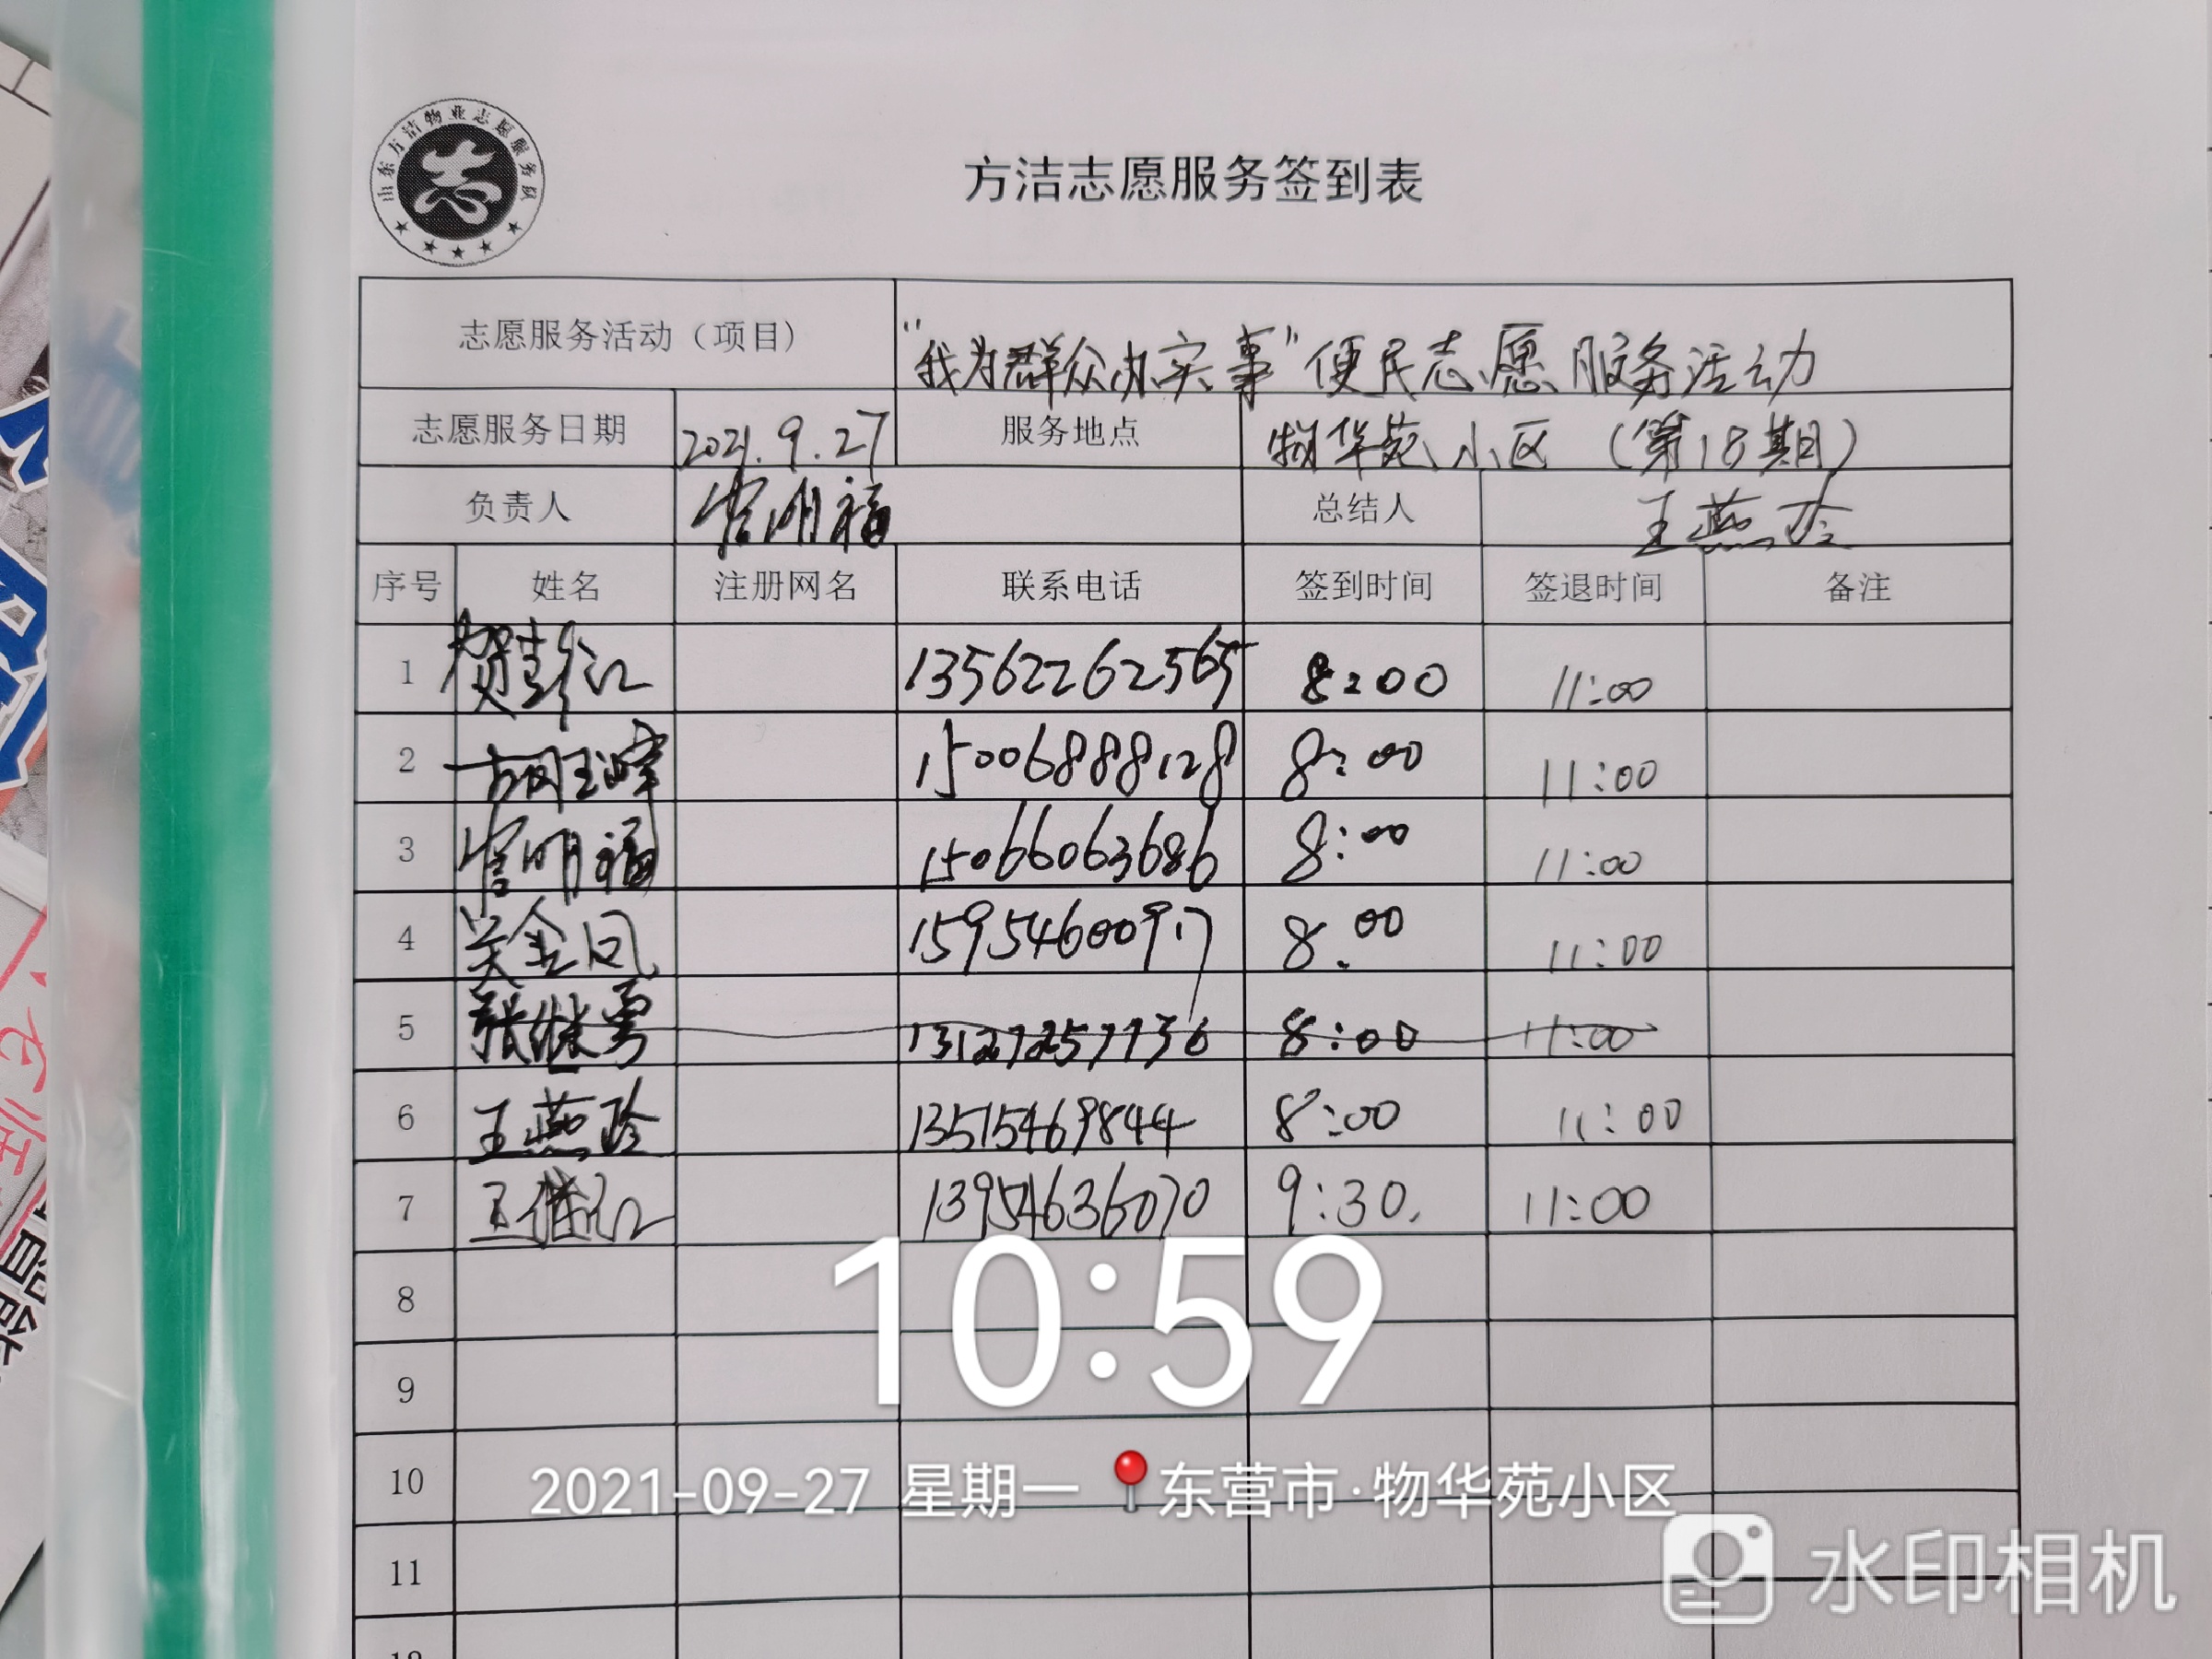 山东方洁物业志愿服务队
方洁志愿服务签到表
志愿服务活动（项目） “我为群众办实事”便民志愿服务活动
志愿服务日期 2021.9.27 服务地点 物华苑小区（第18期）
负责人 官明福 总结人 王燕玲
序号 姓名 注册网名 联系电话 签到时间 签退时间 备注
1 13562262565 8:00 11:00
2 15006888128 8:00 11:00
3 官明福 15066063686 8:00 11:00
4 吴金凤 15954600917 8:00 11:00
5 张继勇 8:00 11:00
6 王燕玲 13515469844 8:00 11:00
7 13954636070 9:30. 11:00
8
10:59
9
10
2021-09-27 星期一 东营市·物华苑小区
11
水印相机